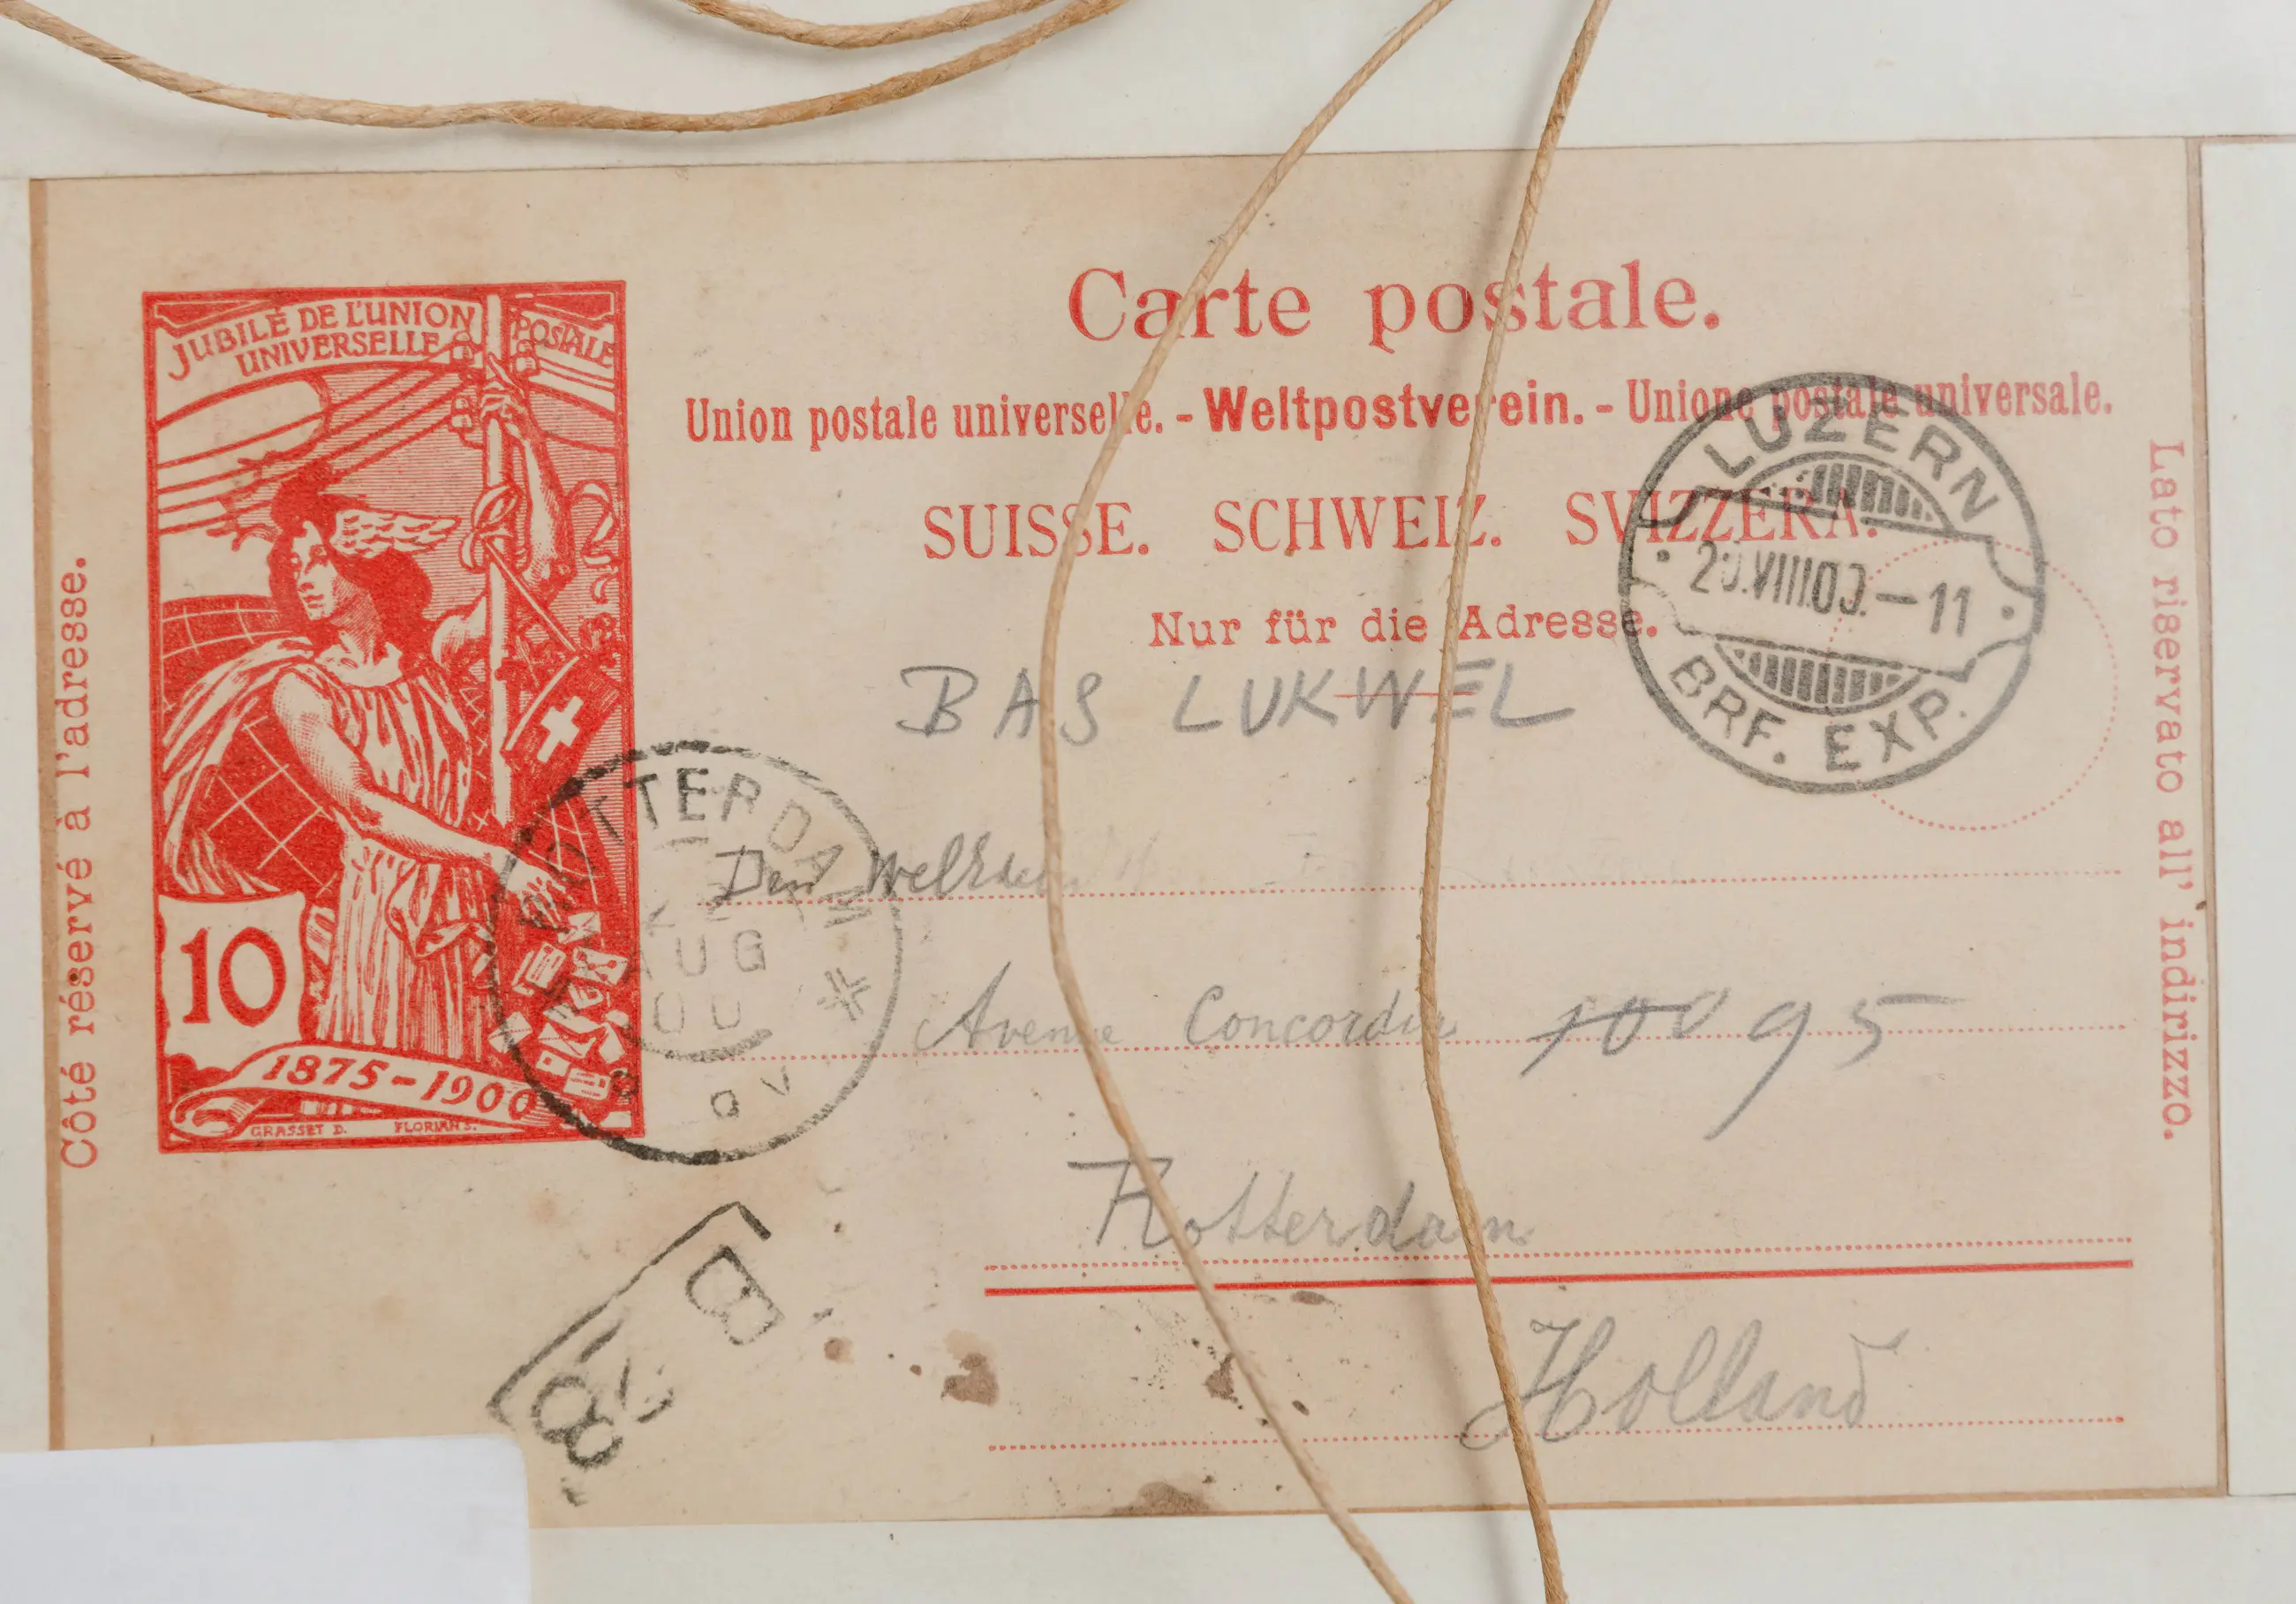 JUBILÉ DE L'UNION POSTALE
UNIVERSELLE
10
1875-1900
GRASSET D. FLORIAN S.
Côté réservé à l'adresse.
Carte postale.
Union postale universelle. - Weltpostverein. - Unione postale universale.
SUISSE. SCHWEIZ. SVIZZERA.
Nur für die Adresse.
LUZERN
VIII.00.-11
BRF. EXP.
BAS LUKWEL
ROTTERDAM
AUG
00
Den
Avenue Concordia 100 95
Rotterdam
Holland
Lato riservato all' indirizzo.